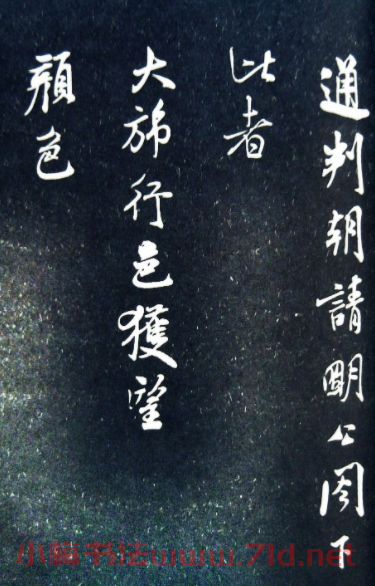 通判朝請朙公閣下
比者
大斾行邑獲望
顏色
书法www.7ld.net